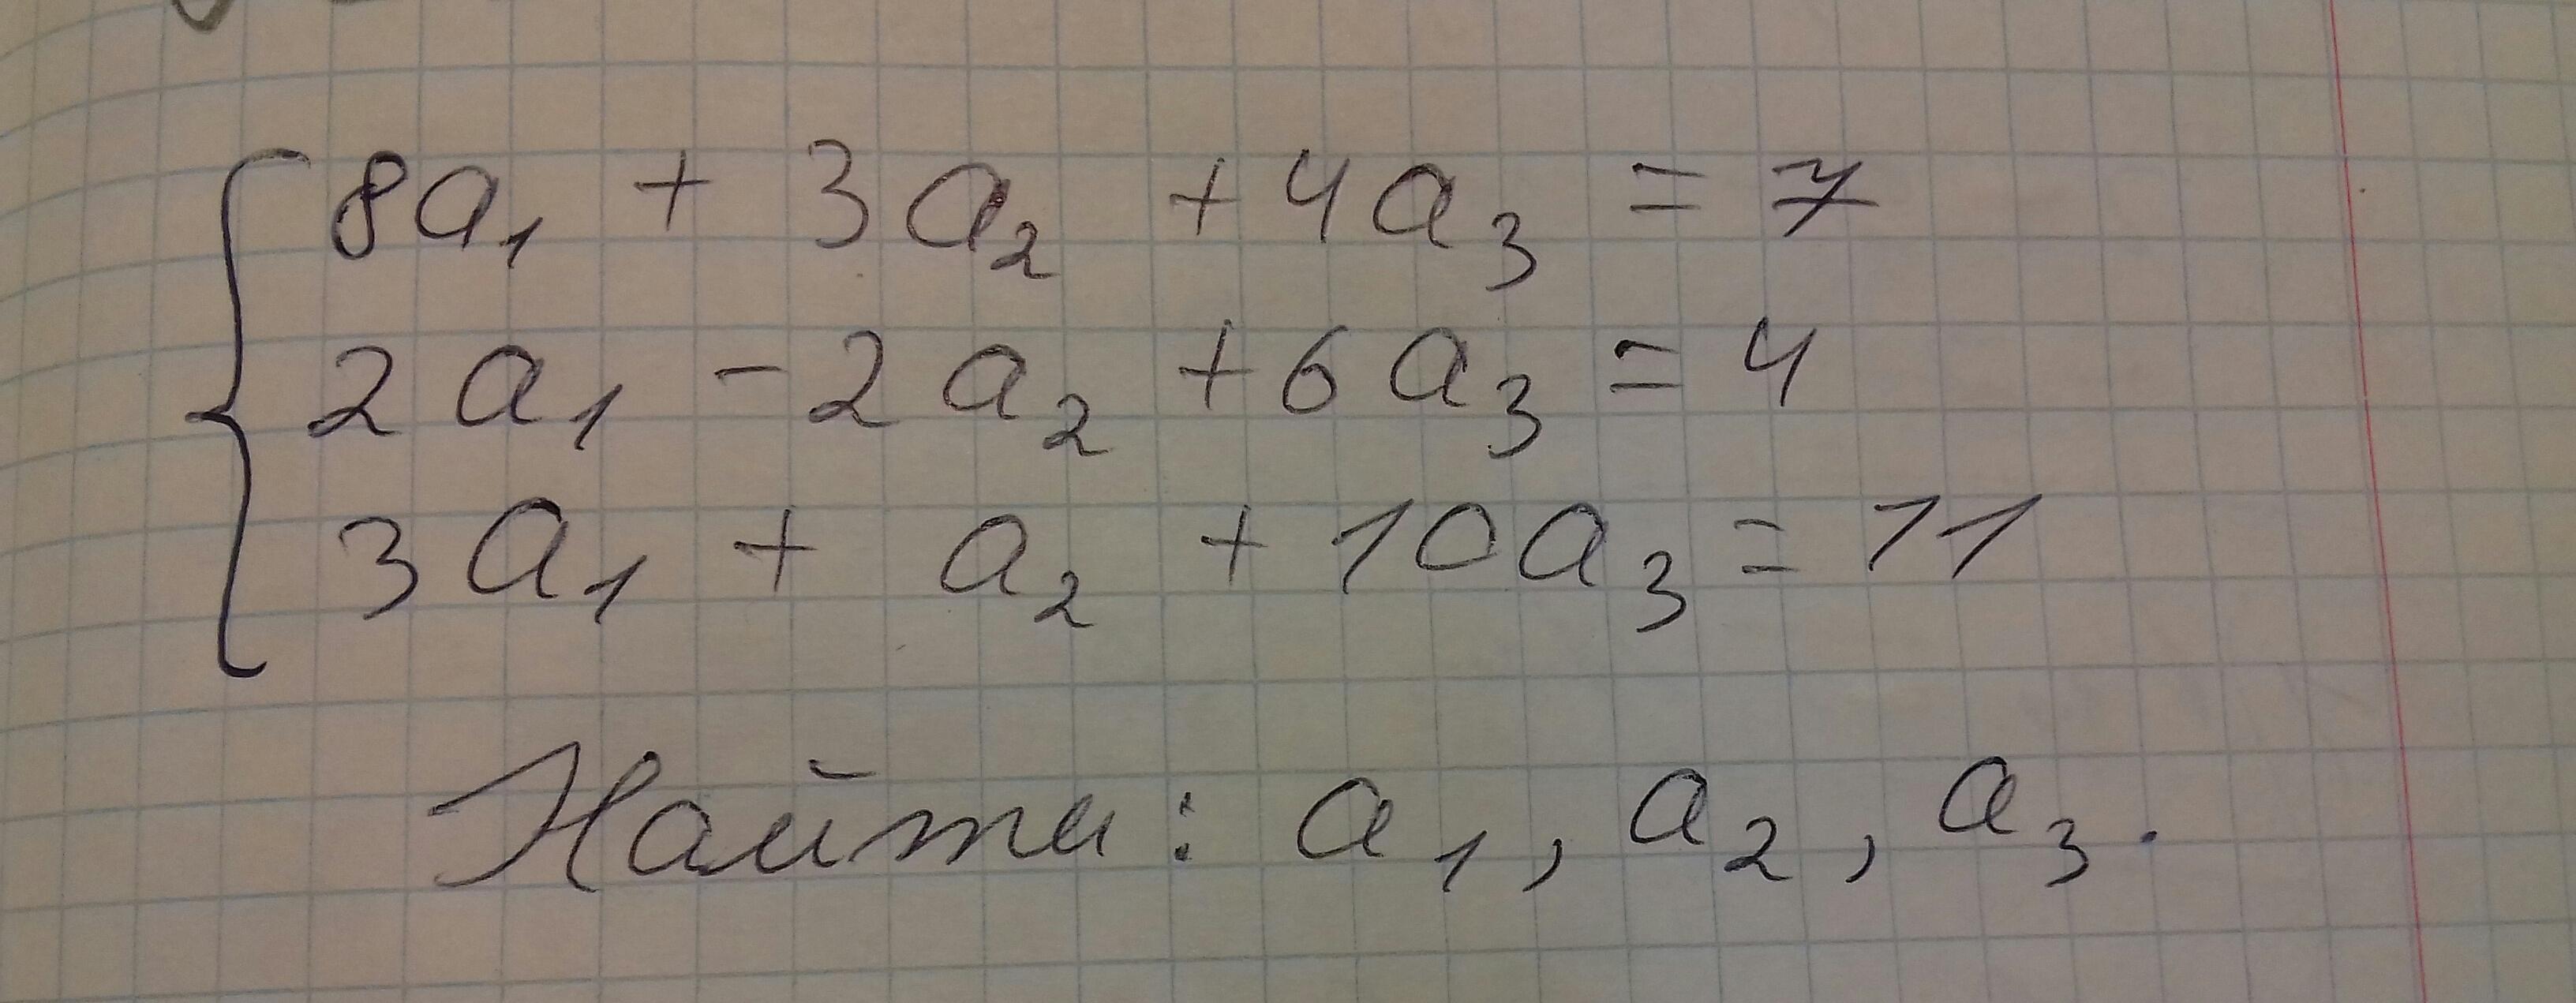 8a₁ + 3a₂ + 4a₃ = 7
2a₁ - 2a₂ + 6a₃ = 4
3a₁ + a₂ + 10a₃ = 11
Найти: a₁, a₂, a₃.